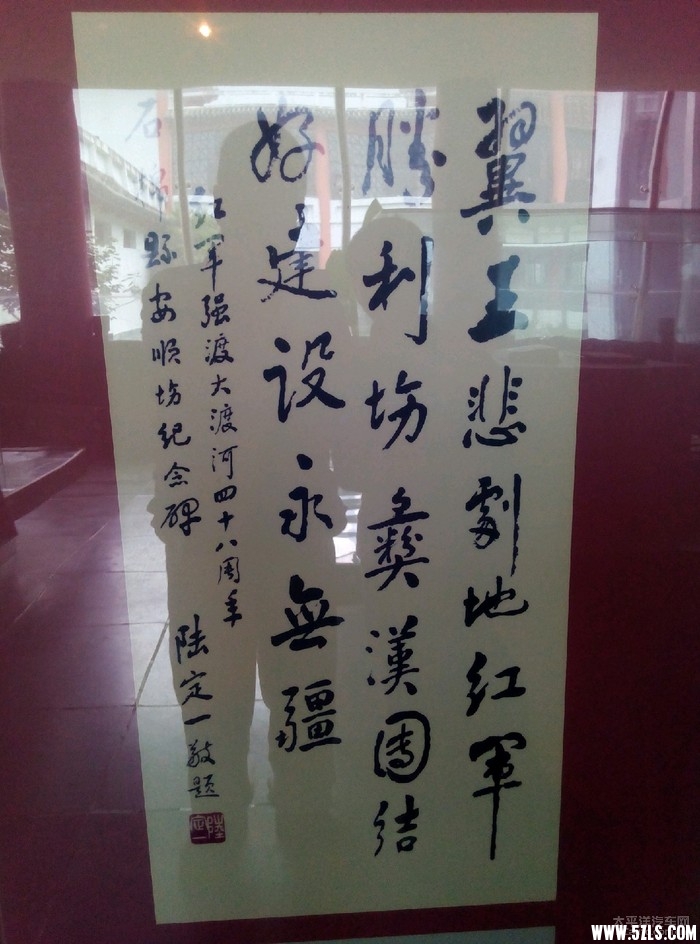 翼王悲劇地红軍
勝利场彝漢團结
好建设永無疆
红军强渡大渡河四十八周年
石棉县安顺场纪念碑
陆定一敬题
陸定一
太平洋汽车网
WWW.5ZLS.COM